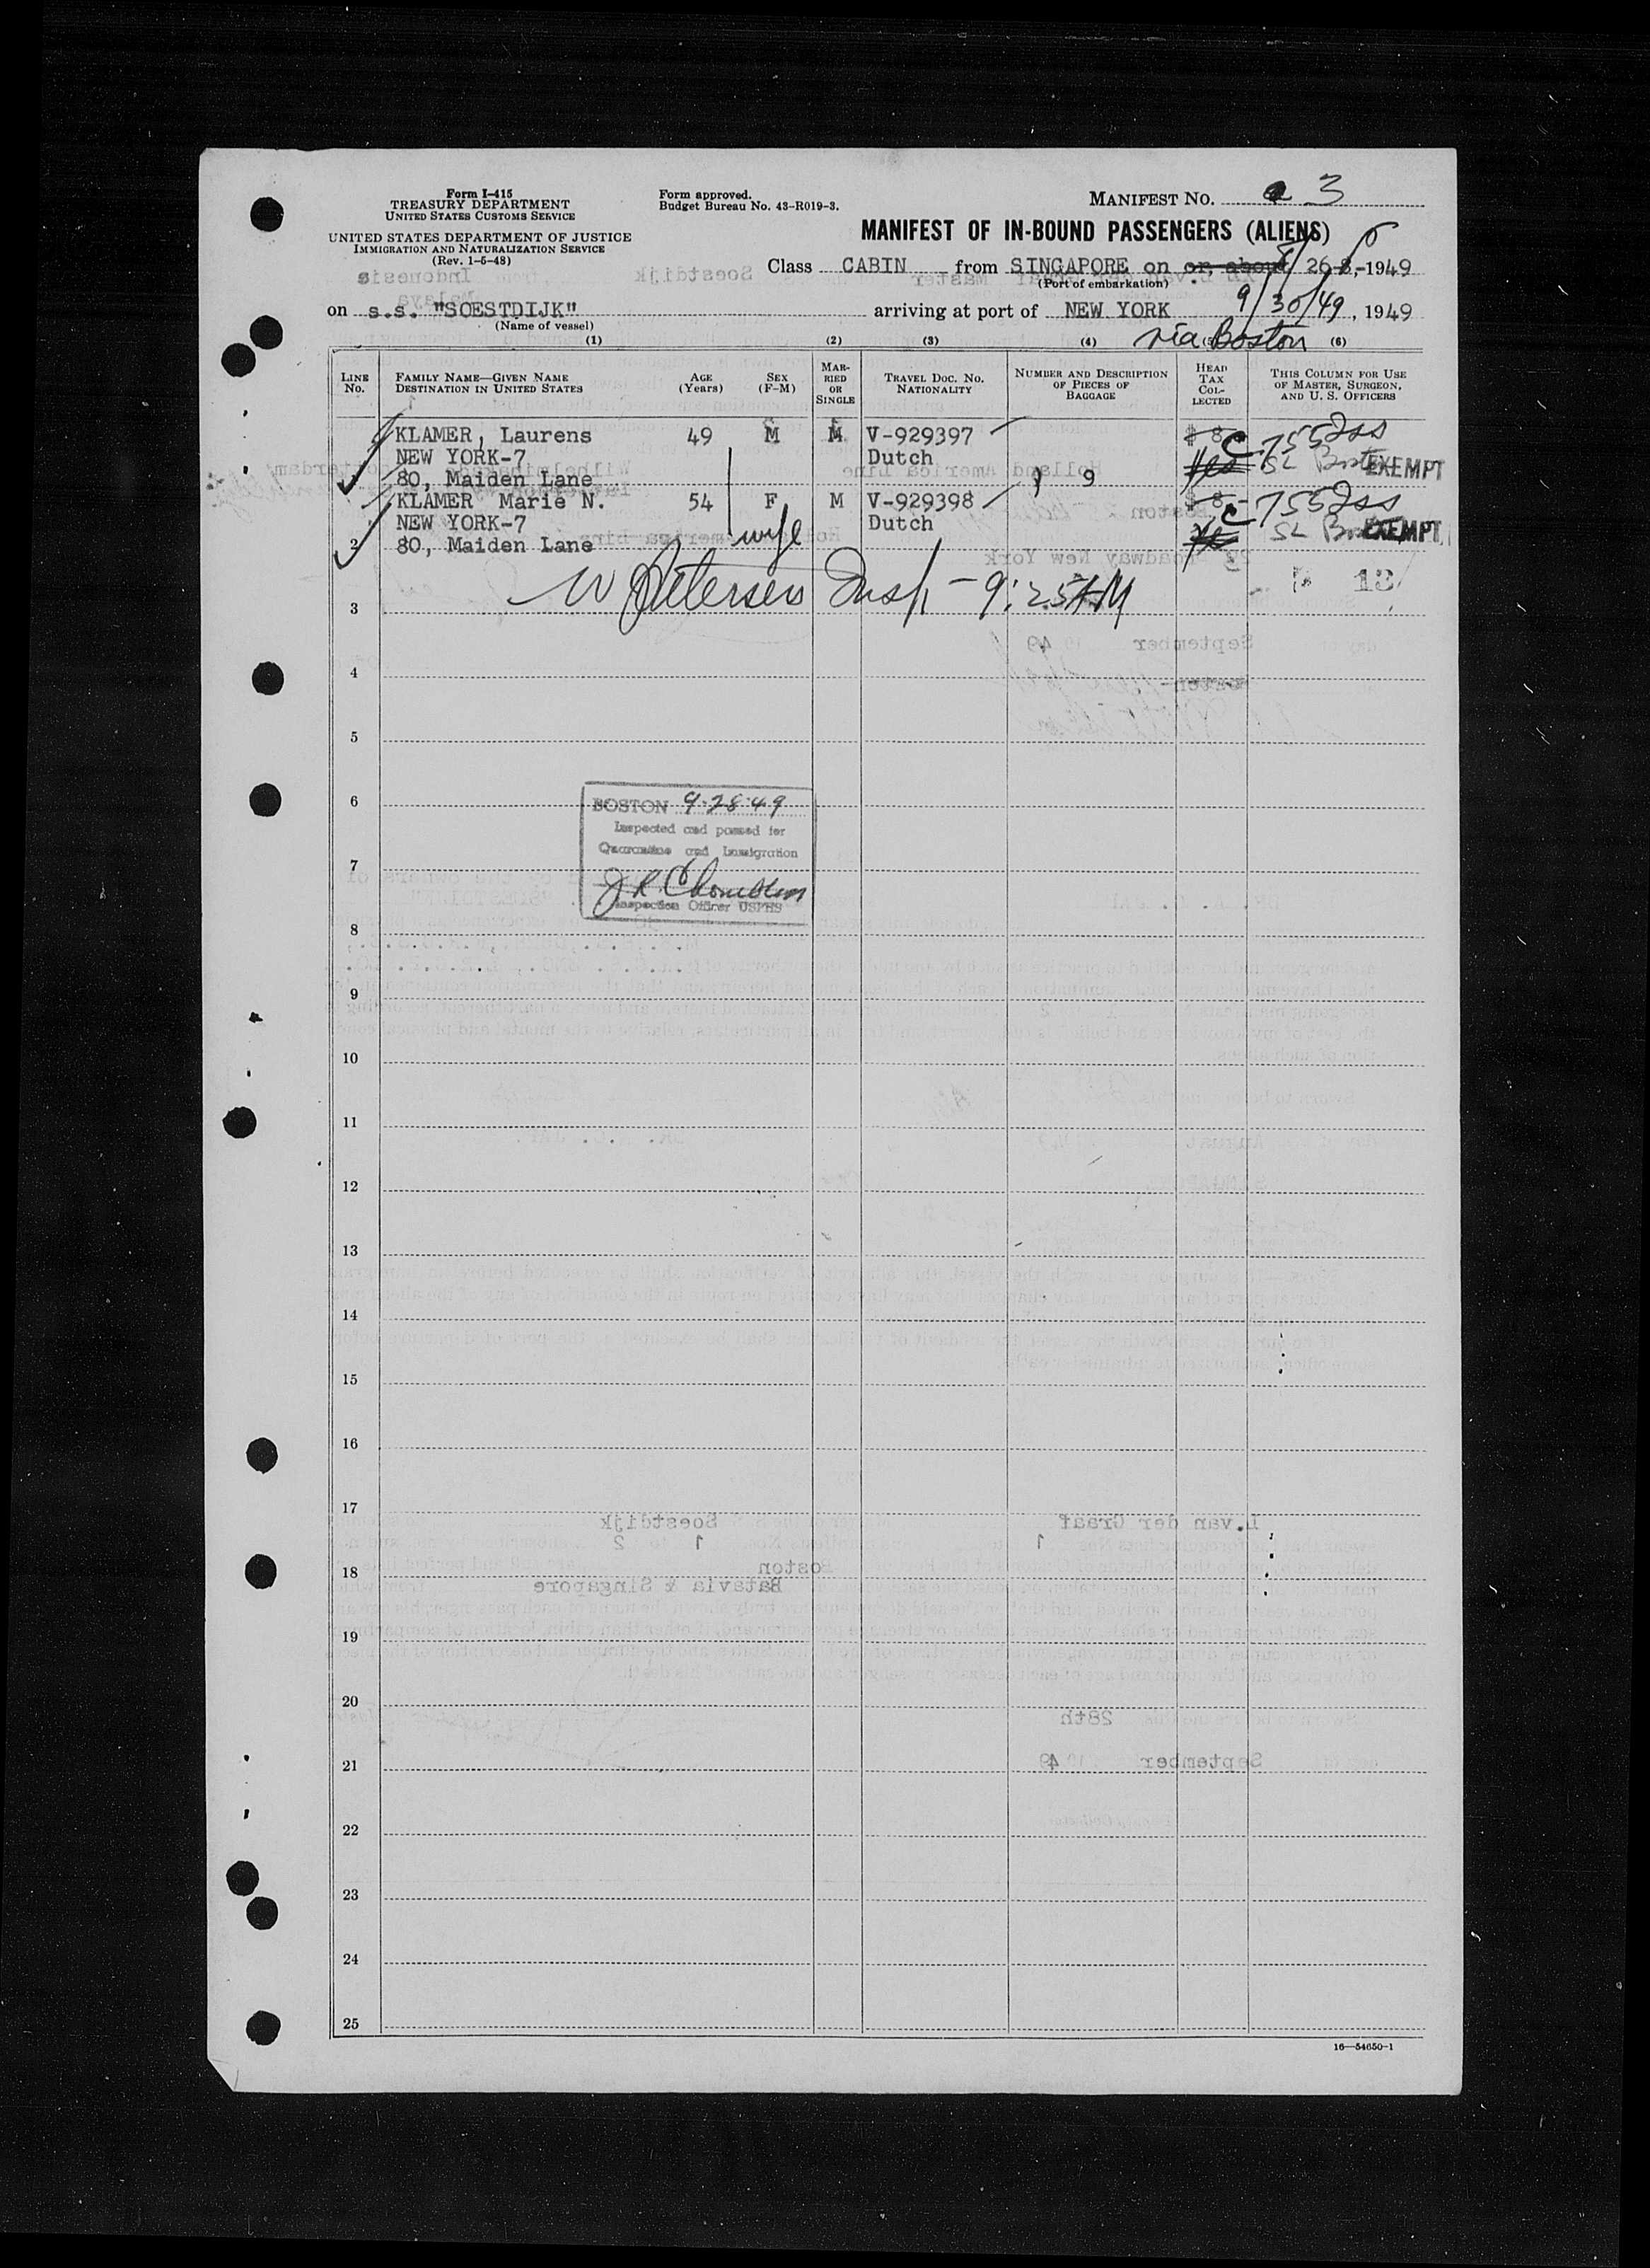 Form I-415
TREASURY DEPARTMENT
UNITED STATES CUSTOMS SERVICE
UNITED STATES DEPARTMENT OF JUSTICE
IMMIGRATION AND NATURALIZATION SERVICE
(Rev. 1-5-48)
Form approved.
Budget Bureau No. 43-R019-3.
MANIFEST NO. 3
MANIFEST OF IN-BOUND PASSENGERS (ALIENS)
Class CABIN from SINGAPORE on or about 26-8,-1949
(Port of embarkation)
on s.s. "SOESTDIJK" arriving at port of NEW YORK 9/30/49, 1949
(Name of vessel)
via Boston
(1) (2) (3) (4) (5) (6)
LINE No. FAMILY NAME—GIVEN NAME DESTINATION IN UNITED STATES AGE (Years) SEX (F-M) MARRIED OR SINGLE TRAVEL DOC. NO. NATIONALITY NUMBER AND DESCRIPTION OF PIECES OF BAGGAGE HEAD TAX COLLECTED THIS COLUMN FOR USE OF MASTER, SURGEON, AND U. S. OFFICERS
KLAMER, Laurens 49 M M V-929397 $ 8
NEW YORK-7 Dutch
80, Maiden Lane 9 EXEMPT
KLAMER Marie N. 54 F M V-929398 $ 8
NEW YORK-7 Dutch
2 80, Maiden Lane wife EXEMPT
W Petersen Insp - 9:25 AM
13
3
4
5
6
BOSTON 9-28-49
Inspected and passed for
Quarantine and Immigration
Inspection Officer USPHS
7
8
9
10
11
12
13
14
15
16
17
18
19
20
21
22
23
24
25
16—54650-1